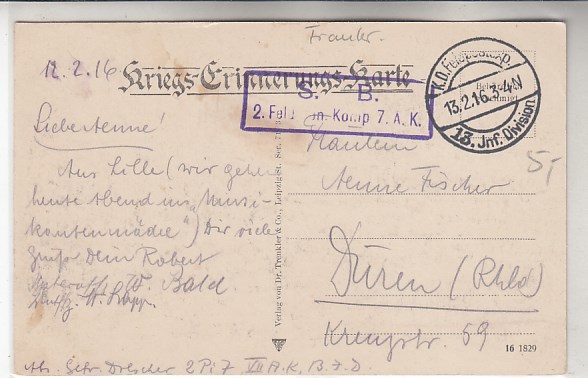 Frankr.
12.2.16
Kriegs-Erinnerungs-Karte
S. B.
2. Feld Komp 7. A. K.
K.D. Feldpostexp.
13.2.16.3-4N
13. Jnf. Division
5,-
Liebe Aenne!
Aus Lille (wir gehen
heute Abend ins "Musi-
kantenmädel") Dir viele
Grüße Dein Robert
Bald
Fräulein
Aenne Fischer
Düren (Rhld)
Kreuzstr. 69
Verlag von Dr. Trenkler & Co., Leipzig-St. Ser.
16 1829
Abs. Gefr. Drescher 2 Pi 7 VII A.K. 13. J.D.